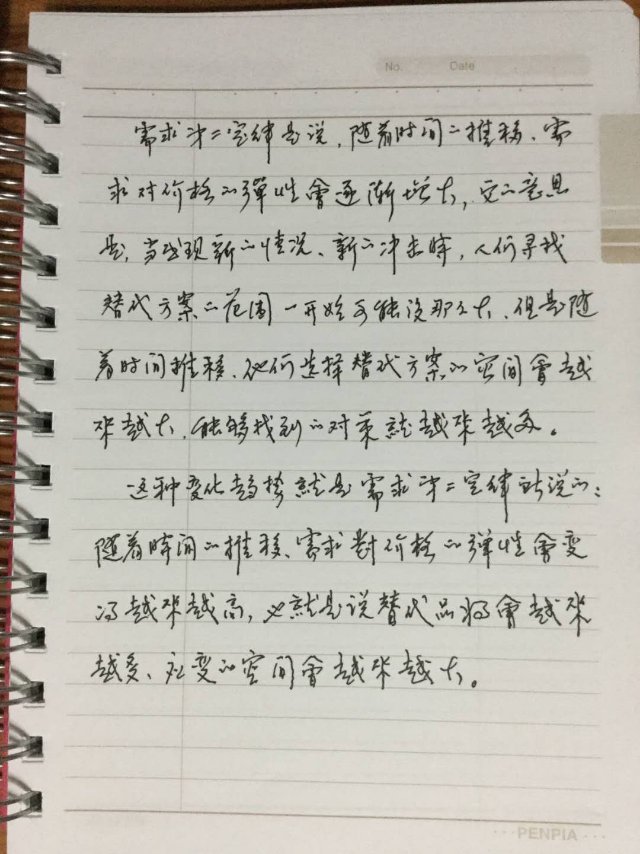 No. Date
需求第二定律是说，随着时间的推移、需
求对价格的弹性會逐渐增大，它的意思
是，当出现新的情况、新的冲击時，人们寻找
替代方案的范围一开始可能没那么大，但是随
着时间推移、他们选择替代方案的空间會越
来越大，能够找到的对策就越来越多。
这种变化趋势就是需求第二定律所说的：
随着時间的推移、需求對价格的弹性會变
得越来越高，也就是说替代品将會越来
越多、应变的空间會越来越大。
PENPIA